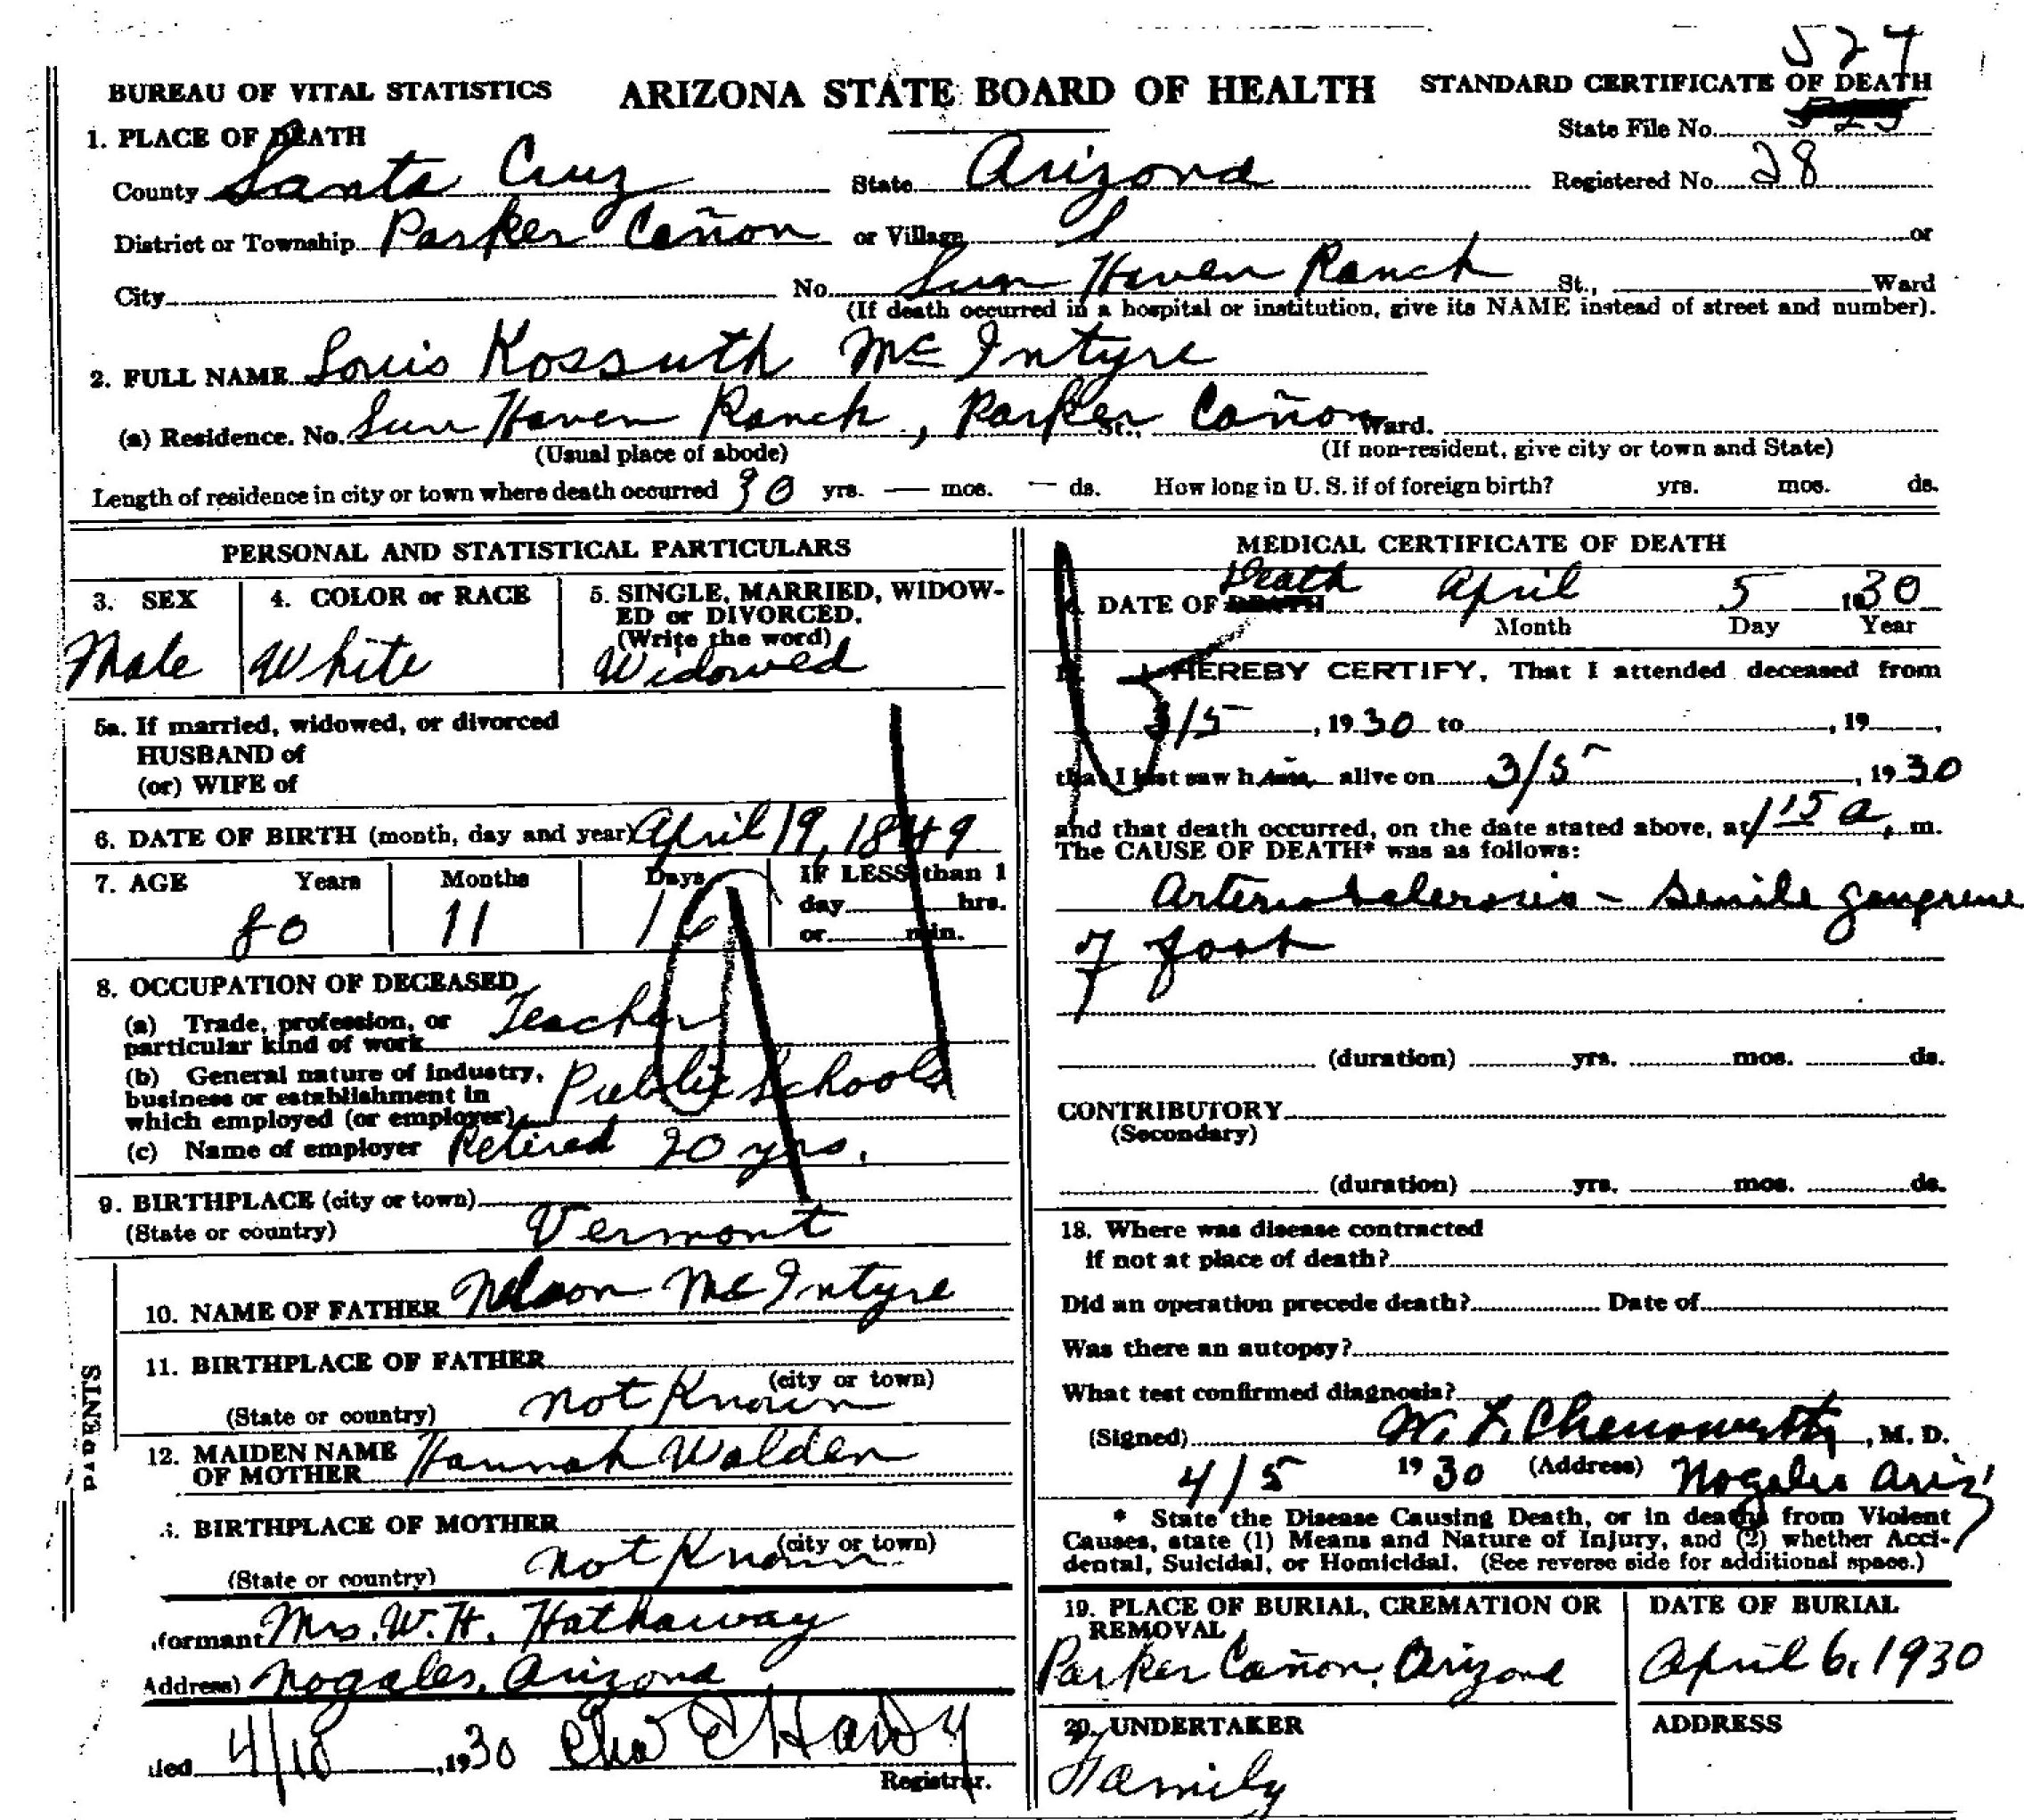 527
BUREAU OF VITAL STATISTICS ARIZONA STATE BOARD OF HEALTH STANDARD CERTIFICATE OF DEATH
1. PLACE OF DEATH State File No. 525
County Santa Cruz State Arizona Registered No. 28
District or Township Parker Cañon or Village or
City No. Sun Haven Ranch St., Ward
(If death occurred in a hospital or institution, give its NAME instead of street and number).
2. FULL NAME Louis Kossuth McIntyre
(a) Residence. No. Sun Haven Ranch, Parker St., Cañon Ward.
(Usual place of abode) (If non-resident, give city or town and State)
Length of residence in city or town where death occurred 30 yrs. — mos. — ds. How long in U. S. if of foreign birth? yrs. mos. ds.
PERSONAL AND STATISTICAL PARTICULARS
3. SEX 4. COLOR or RACE 5. SINGLE, MARRIED, WIDOW-
ED or DIVORCED.
(Write the word)
Male White Widowed
5a. If married, widowed, or divorced
HUSBAND of
(or) WIFE of
6. DATE OF BIRTH (month, day and year) April 19, 1849
7. AGE Years Months Days IF LESS than 1
day hrs.
80 11 16 or min.
8. OCCUPATION OF DECEASED
(a) Trade, profession, or Teacher
particular kind of work
(b) General nature of industry,
business or establishment in Public Schools
which employed (or employer)
(c) Name of employer Retired 20 yrs.
9. BIRTHPLACE (city or town)
(State or country) Vermont
PARENTS
10. NAME OF FATHER Nelson McIntyre
11. BIRTHPLACE OF FATHER
(city or town)
(State or country) not Known
12. MAIDEN NAME
OF MOTHER Hannah Walden
BIRTHPLACE OF MOTHER
(city or town)
(State or country) not Known
formant Mrs. W. H. Hathaway
Address) Nogales, Arizona
iled 4/10, 1930 Chas E Hardy
Registrar.
MEDICAL CERTIFICATE OF DEATH
Death
DATE OF DEATH April 5 1930
Month Day Year
I HEREBY CERTIFY, That I attended deceased from
3/5, 1930 to , 19 ,
that I last saw him alive on 3/5, 1930
and that death occurred, on the date stated above, at 1 15 a. m.
The CAUSE OF DEATH* was as follows:
Arteriosclerosis - Senile gangrene
of foot
(duration) yrs. mos. ds.
CONTRIBUTORY
(Secondary)
(duration) yrs. mos. ds.
18. Where was disease contracted
if not at place of death?
Did an operation precede death? Date of
Was there an autopsy?
What test confirmed diagnosis?
(Signed) W. F. Chenoweth, M. D.
4/5 1930 (Address) Nogales Ariz
* State the Disease Causing Death, or in deaths from Violent
Causes, state (1) Means and Nature of Injury, and (2) whether Acci-
dental, Suicidal, or Homicidal. (See reverse side for additional space.)
19. PLACE OF BURIAL, CREMATION OR DATE OF BURIAL
REMOVAL
Parker Cañon, Arizona April 6, 1930
20. UNDERTAKER ADDRESS
Family